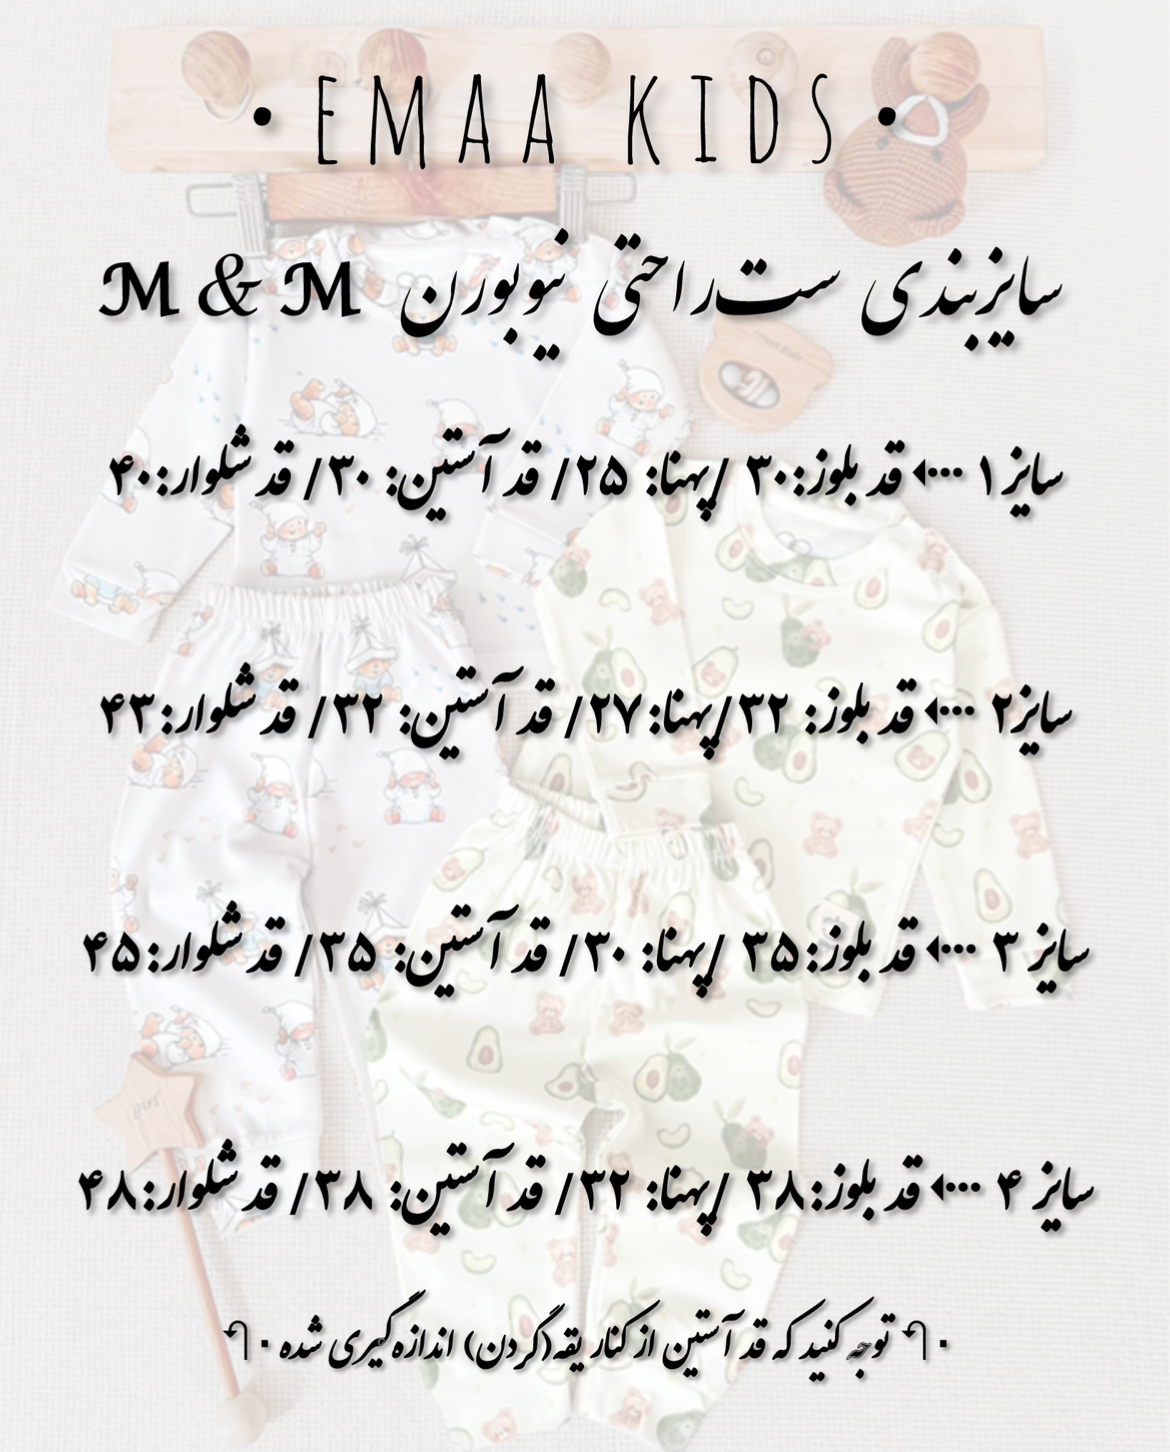 • EMAA KIDS •
سایزبندی ست راحتی نیوبورن M & M
سایز ۱ ···◂ قد بلوز:۳۰ /پهنا: ۲۵/ قد آستین: ۳۰/ قد شلوار:۴۰
سایز۲ ···◂ قد بلوز: ۳۲/پهنا:۲۷/ قد آستین: ۳۲/ قد شلوار:۴۳
سایز ۳ ···◂ قد بلوز:۳۵ /پهنا: ۳۰/ قد آستین: ۳۵/ قد شلوار:۴۵
سایز ۴ ···◂ قد بلوز:۳۸ /پهنا: ۳۲/ قد آستین: ۳۸/ قد شلوار:۴۸
توجه کنید که قد آستین از کنار یقه(گردن) اندازه گیری شده